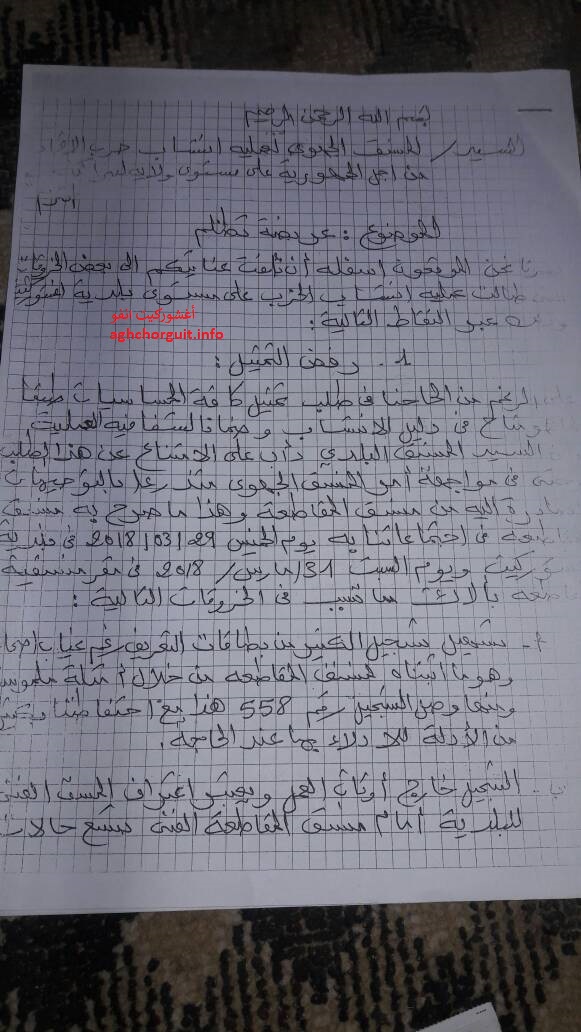 بسم الله الرحمن الرحيم
السيد/ المنسق الجهوي لعملية انتساب حزب
من اجل الجمهورية على مستوى ولاية
الموضوع: عريضة تظلم
نحن الموقعون اسفله أن نلفت عنايتكم الى بعض الخروقات
طالت عملية انتساب الحزب على مستوى بلدية
عبر النقاط التالية:
أغشوركيت أنفو
aghchorguit.info
1. رفض التمثيل:
الرغم من الحاحنا في طلب تمثيل كافة الحساسيات طبقا
في دليل الانتساب وضمانا لشفافية العملية
السيد المنسق البلدي دأب على الامتناع عن هذا الطلب
في مواجهة أمر المنسق الجهوي متذرعا بالتوجيهات
اليه من منسق المقاطعة وهذا ما صرح به منسق
في اجتماعاتنا به يوم الخميس 29/03/2018 في
ويوم السبت 31/مارس/2018 في مقر منسقية
بالاك مما تسبب في الخروقات التالية:
أ- تسجيل الكثير من بطاقات التعريف رغم غياب
وهو ما اثبتناه لمنسق المقاطعة من خلال أمثلة
وصل التسجيل رقم 558 هذا مع احتفاظنا
من الأدلة للادلاء بها عند الحاجة.
ب- التسجيل خارج أوقات العمل اعتراف المنسق الفني
للبلدية أمام منسق المقاطعة الفني حالات